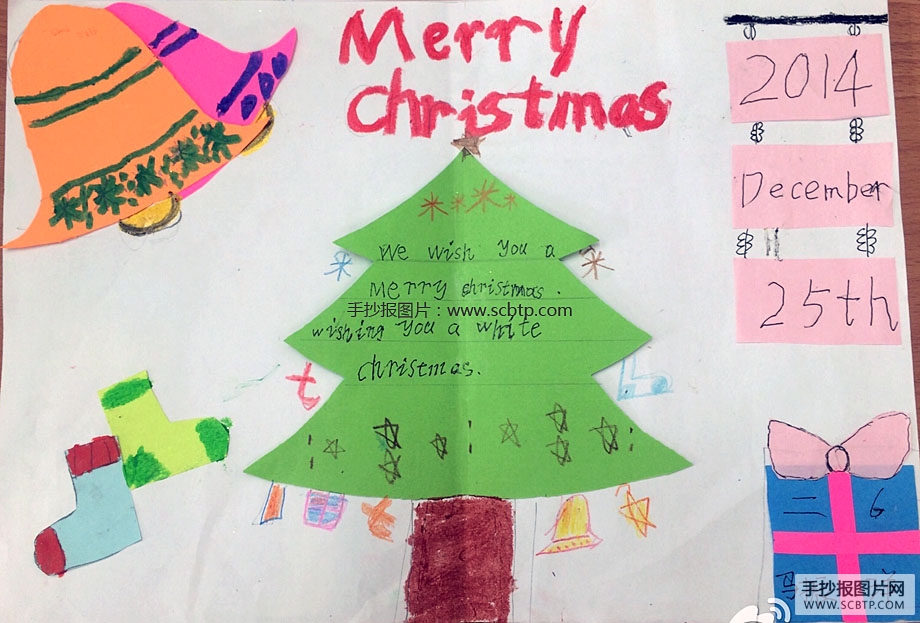 Merry
christmas
2014
December
25th
We wish you a
Merry christmas.
手抄报图片：www.scbtp.com
wishing you a white
christmas.
二 6
手抄报图片网
WWW.SCBTP.COM